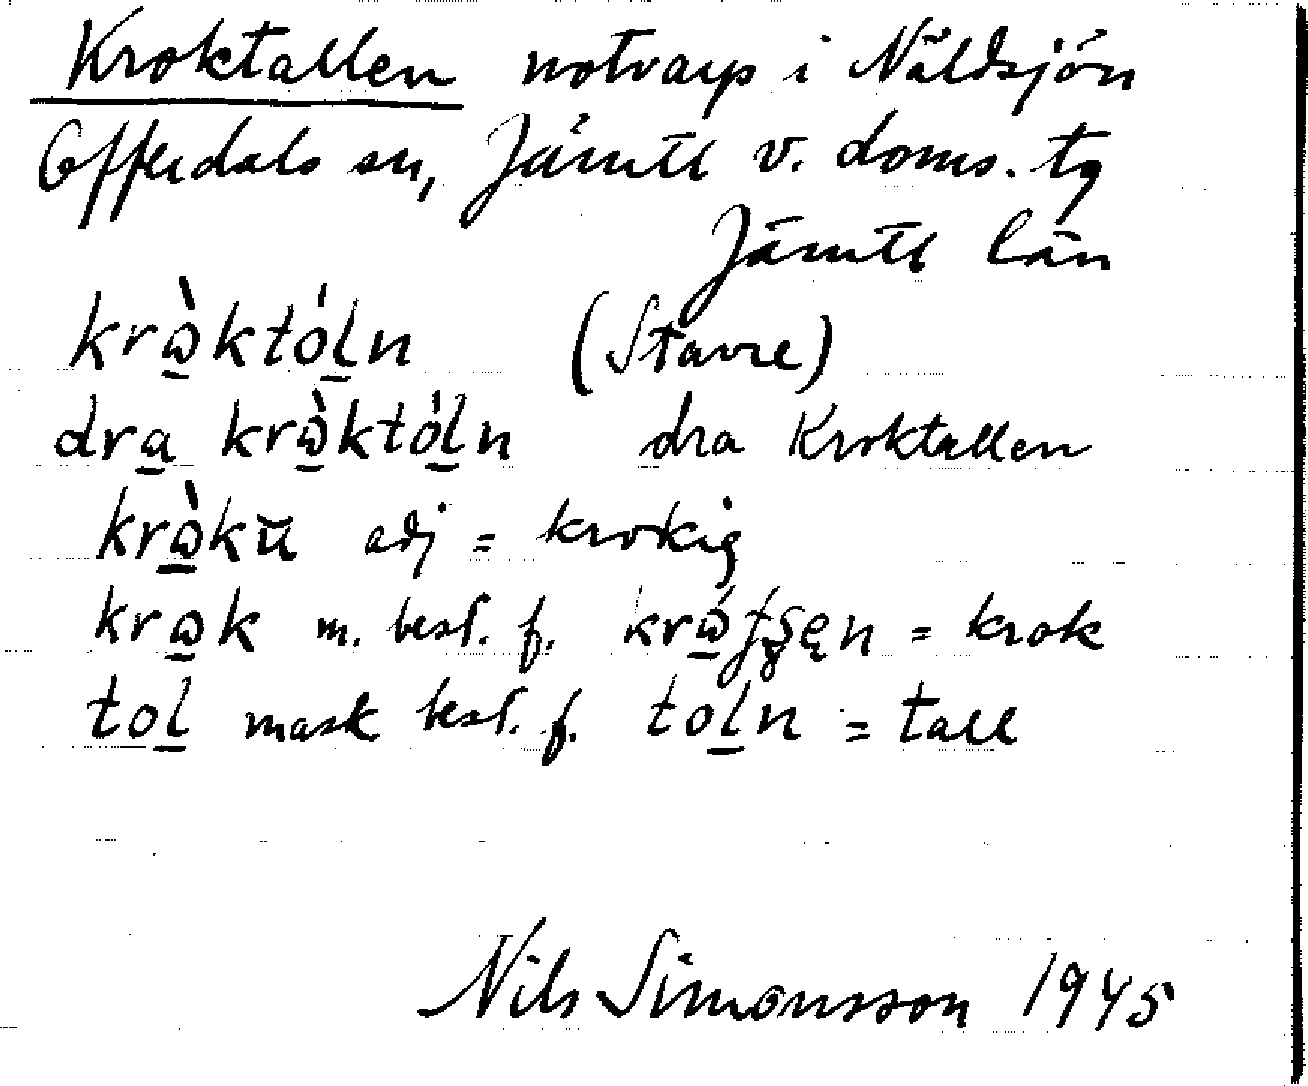 Kroktallen notvarp i Näldsjön
Offerdals sn, Jämtl v. doms. tg
Jämtl län
krὼ̱któl̲n (Stavre)
dra̲ krὼ̱któl̲n dra Kroktallen
krὼ̱kū adj = krokig
krω̱k m. best. f. = krok
tol̲ mask best. f. tol̲n = tall
Nils Simonsson 1945